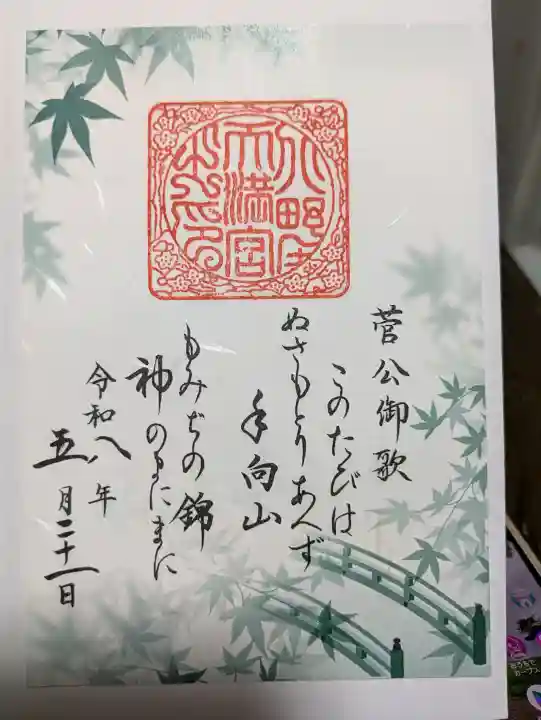 菅公御歌
このたびは
ぬさもとりあへず
手向山
もみぢの錦
神のまにまに
令和八年
五月二十一日
天満宮